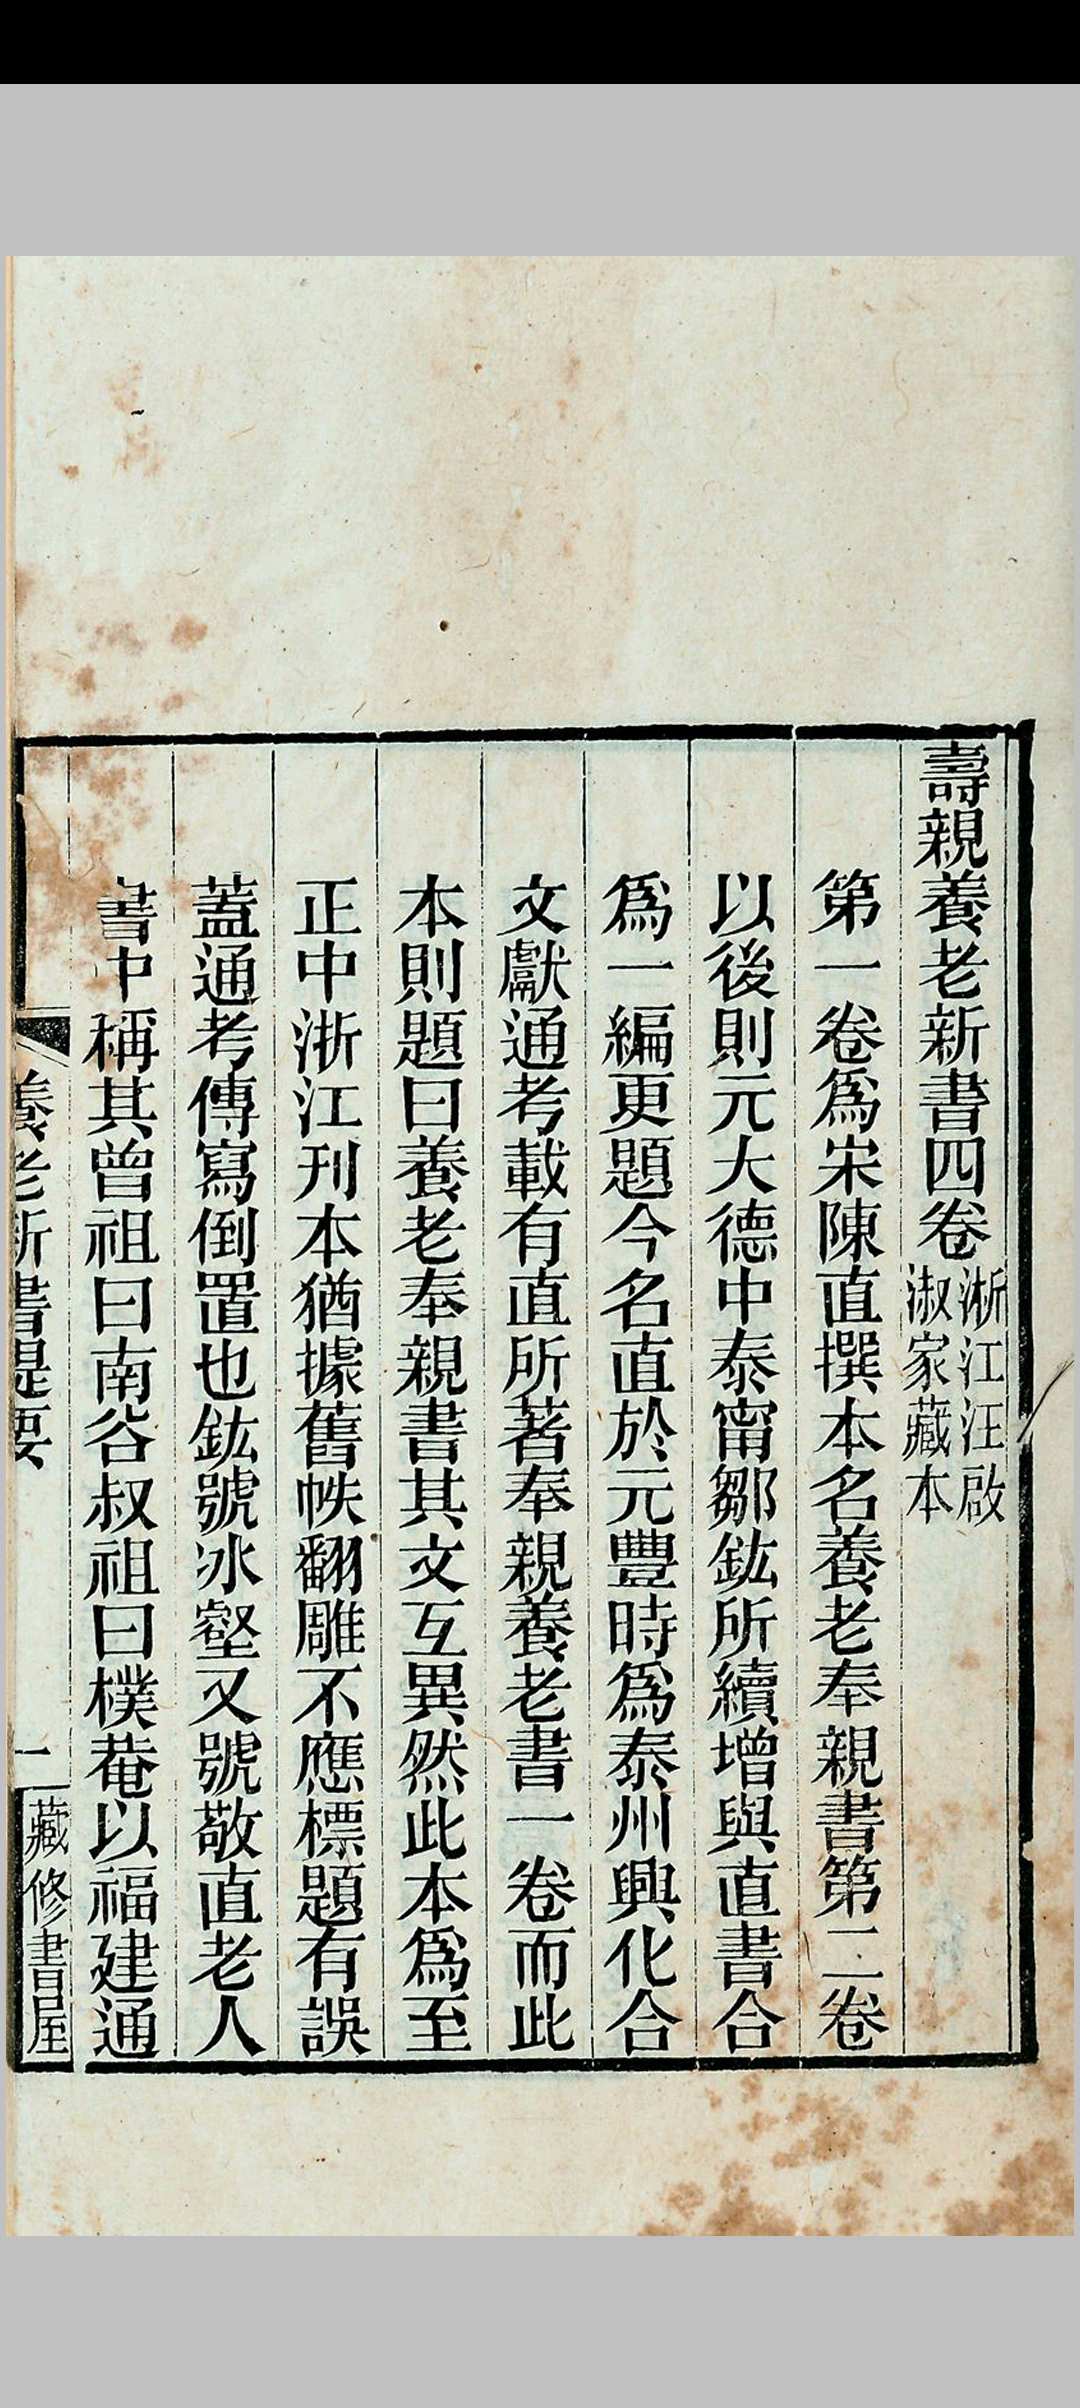 壽親養老新書四卷浙江汪啟淑家藏本
第一卷爲宋陳直撰本名養老奉親書第二卷
以後則元大德中泰甯鄒鈜所續增與直書合
爲一編更題今名直於元豐時爲泰州興化令
文獻通考載有直所著奉親養老書一卷而此
本則題曰養老奉親書其文互異然此本爲至
正中浙江刊本猶據舊帙翻雕不應標題有誤
蓋通考傳寫倒置也鈜號冰壑又號敬直老人
書中稱其曾祖曰南谷叔祖曰樸菴以福建通
養老新書提要 一 藏修書屋